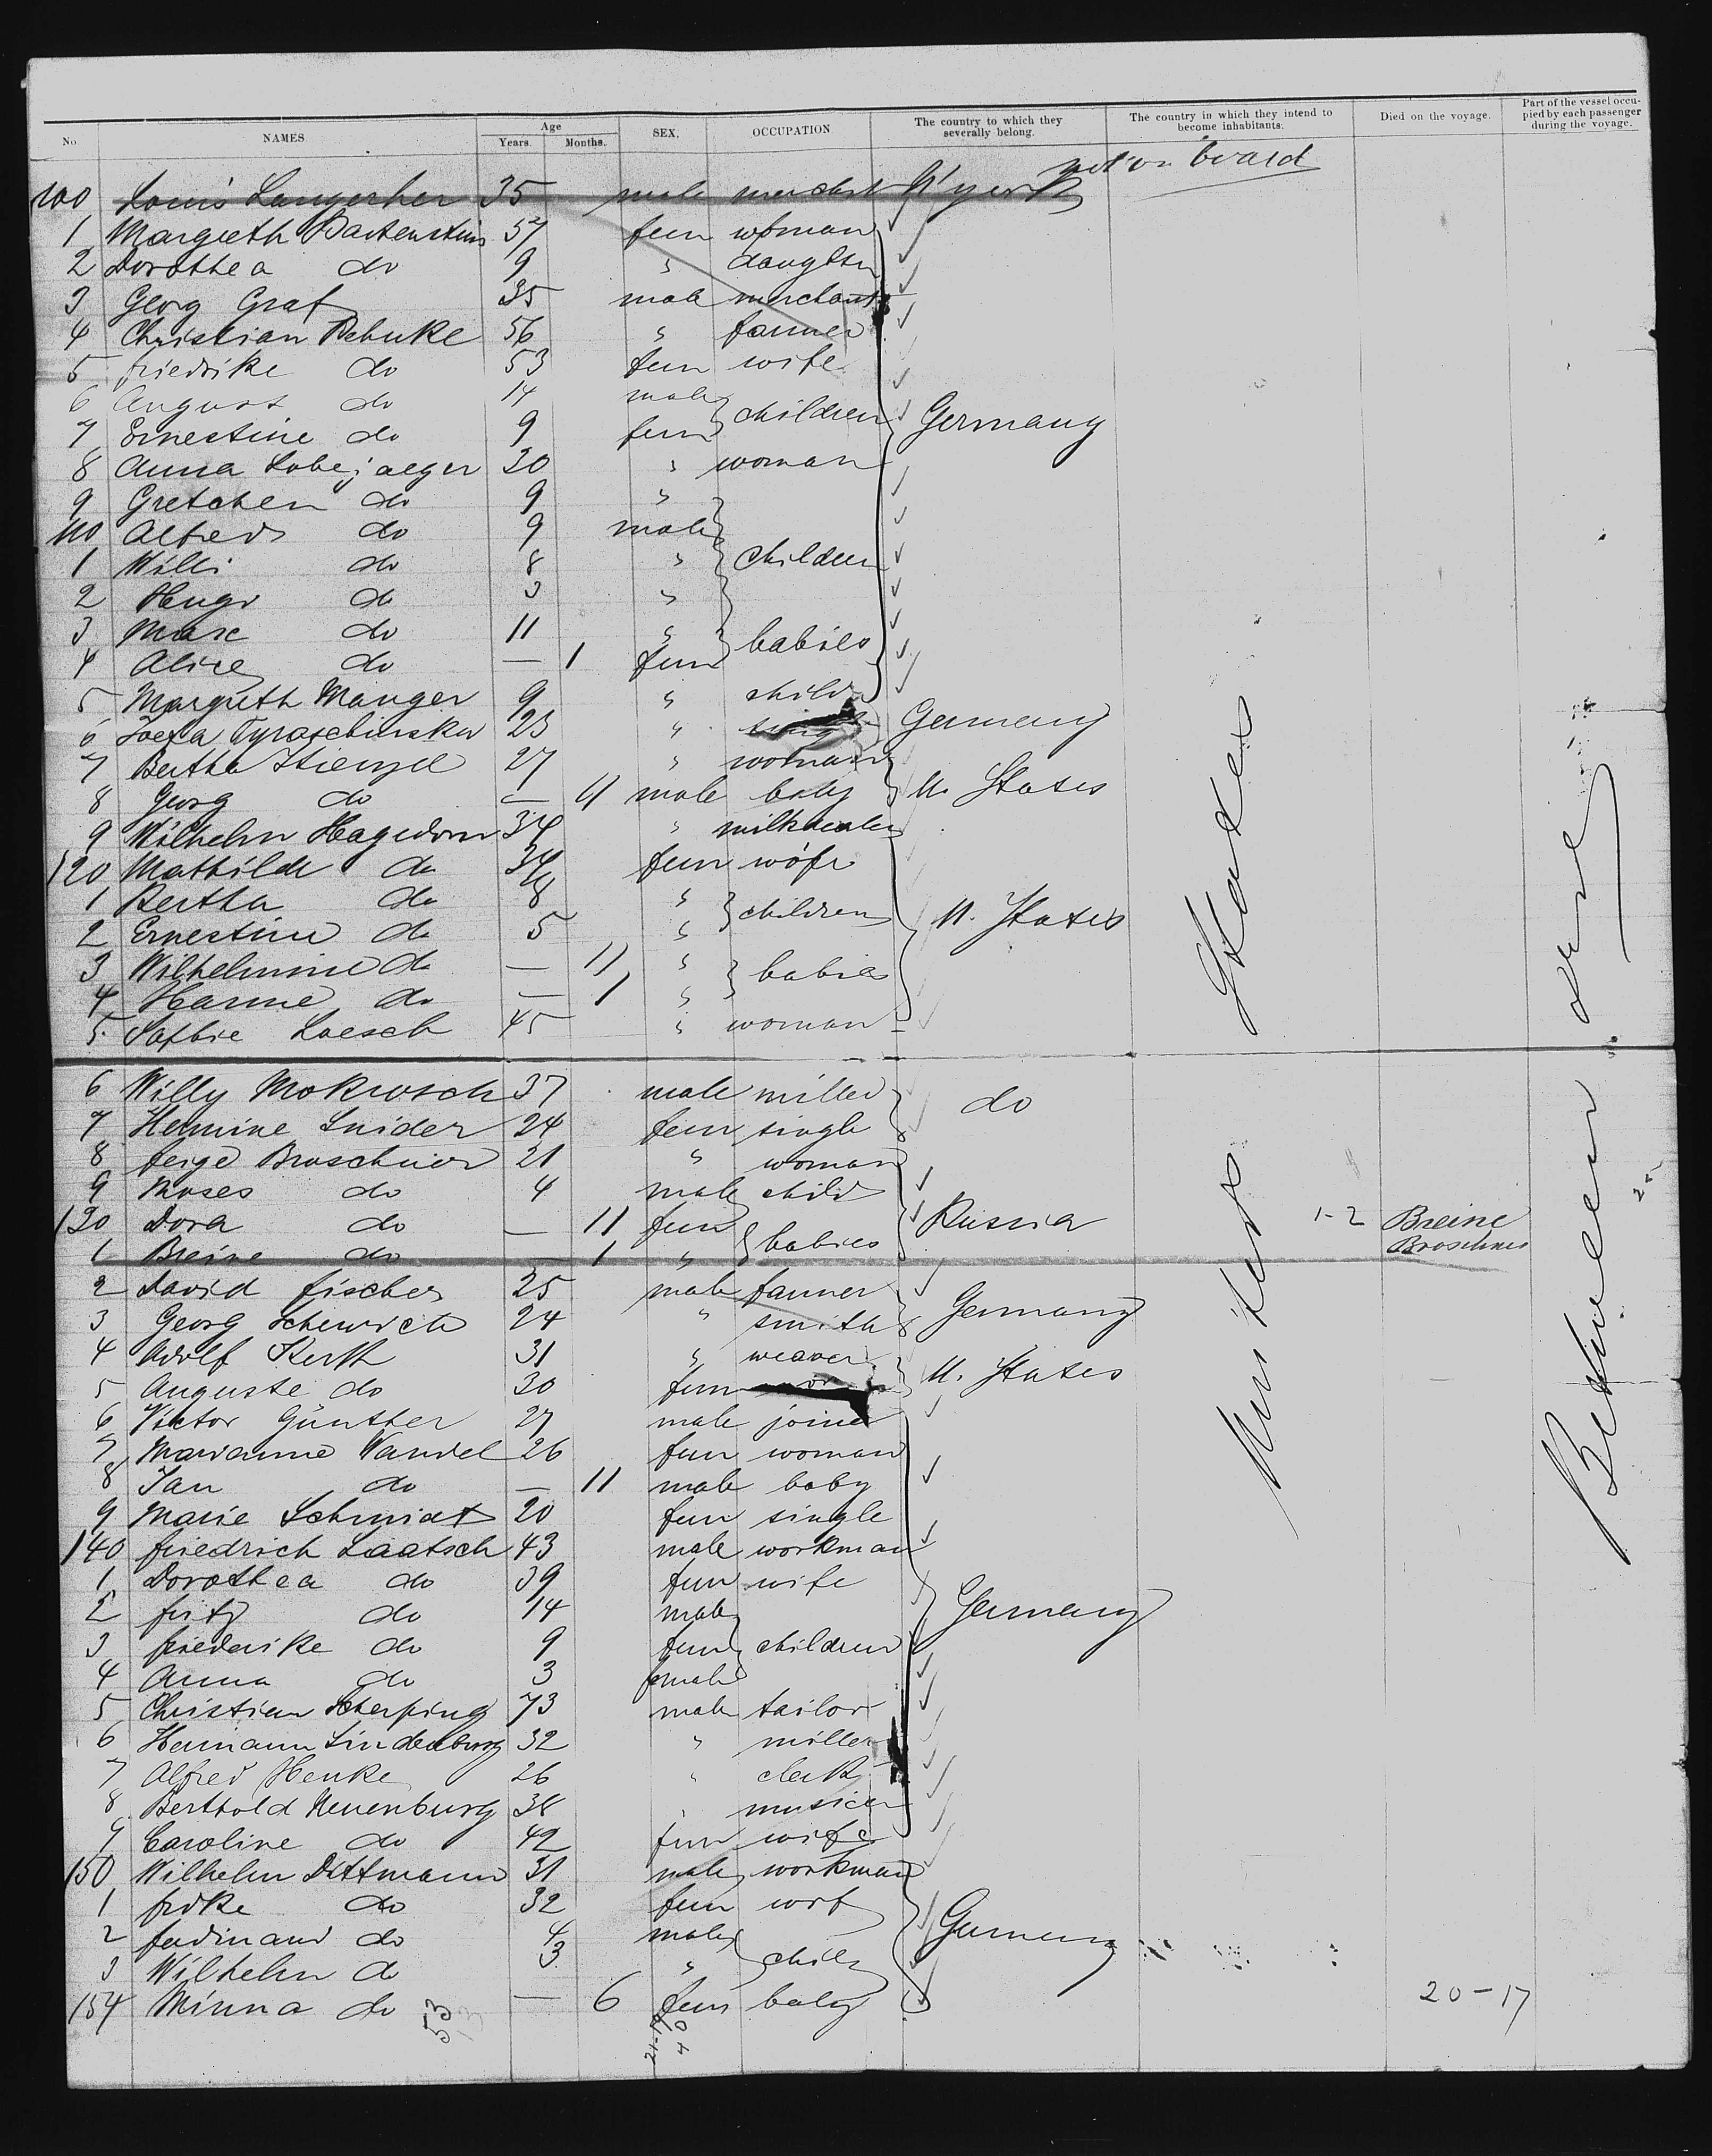 No. NAMES Age Years. Months. SEX. OCCUPATION The country to which they severally belong. The country in which they intend to become inhabitants. Died on the voyage. Part of the vessel occupied by each passenger during the voyage.
100 Louis Langerher 35 male merchst N'york not on board
1 Margreth Bartenstein 57 fem woman
2 Dorothea do 9 " daughter
3 Georg Graf 35 male merchant
4 Christian Behnke 56 " farmer
5 friedrike do 53 fem wife
6 August do 14 male children
7 Ernestine do 9 fem Germany
8 Anna Lobejaeger 30 " woman
9 Gretchen do 9 "
110 Alfred do 9 male
1 Willi do 8 " children
2 Hugo do 3 "
3 Max do 11 " babies
4 Alice do — 1 fem
5 Margreth Manger 9 " child
6 Josefa Tyraschinska 23 " Germany
7 Bertha Stienzel 27 " woman
8 Georg do — 9 male baby U. States
9 Wilhelm Hagedorn 34 " milkdealer
120 Mathilde do 34 fem wife
1 Bertha do 8 " children
2 Ernestine do 5 " U. States
3 Wilhelmine do — 11 " babies
4 Hanne do — 1 "
5 Sophie Loesch 45 " woman
6 Willy Mokrosch 37 male miller do
7 Hermine Snider 24 fem single
8 feige Broschner 21 " woman
9 Moses do 4 male child
130 Dora do — 11 fem babies Russia 1-2 Breine
1 Breine do — 1 " Broschner
2 David fischer 25 male farmer
3 Georg Schewich 24 " smith Germany
4 Adolf Kerth 31 " weaver
5 Auguste do 30 fem U. States
6 Victor Günther 27 male joiner
7 Marianne Wandel 26 fem woman
8 Jan do — 11 male baby
9 Marie Schmidt 20 fem single
140 friedrich Laatsch 43 male workman
1 Dorothea do 39 fem wife
2 fritz do 14 male Germany
3 friederike do 9 fem children
4 Anna do 3 female
5 Christian Scherping 73 male tailor
6 Hermann Lindenburg 32 " miller
7 Alfred Henke 26 " clerk
8 Berthold Neuenburg 38 " musicer
9 Caroline do 42 fem wife
150 Wilhelm Dittmann 31 male workman
1 frdke do 32 fem wif
2 ferdinand do 4 male Germany
3 Wilhelm do 3 " child
154 Minna do — 6 fem baby 20-17
53
United States
Between deck